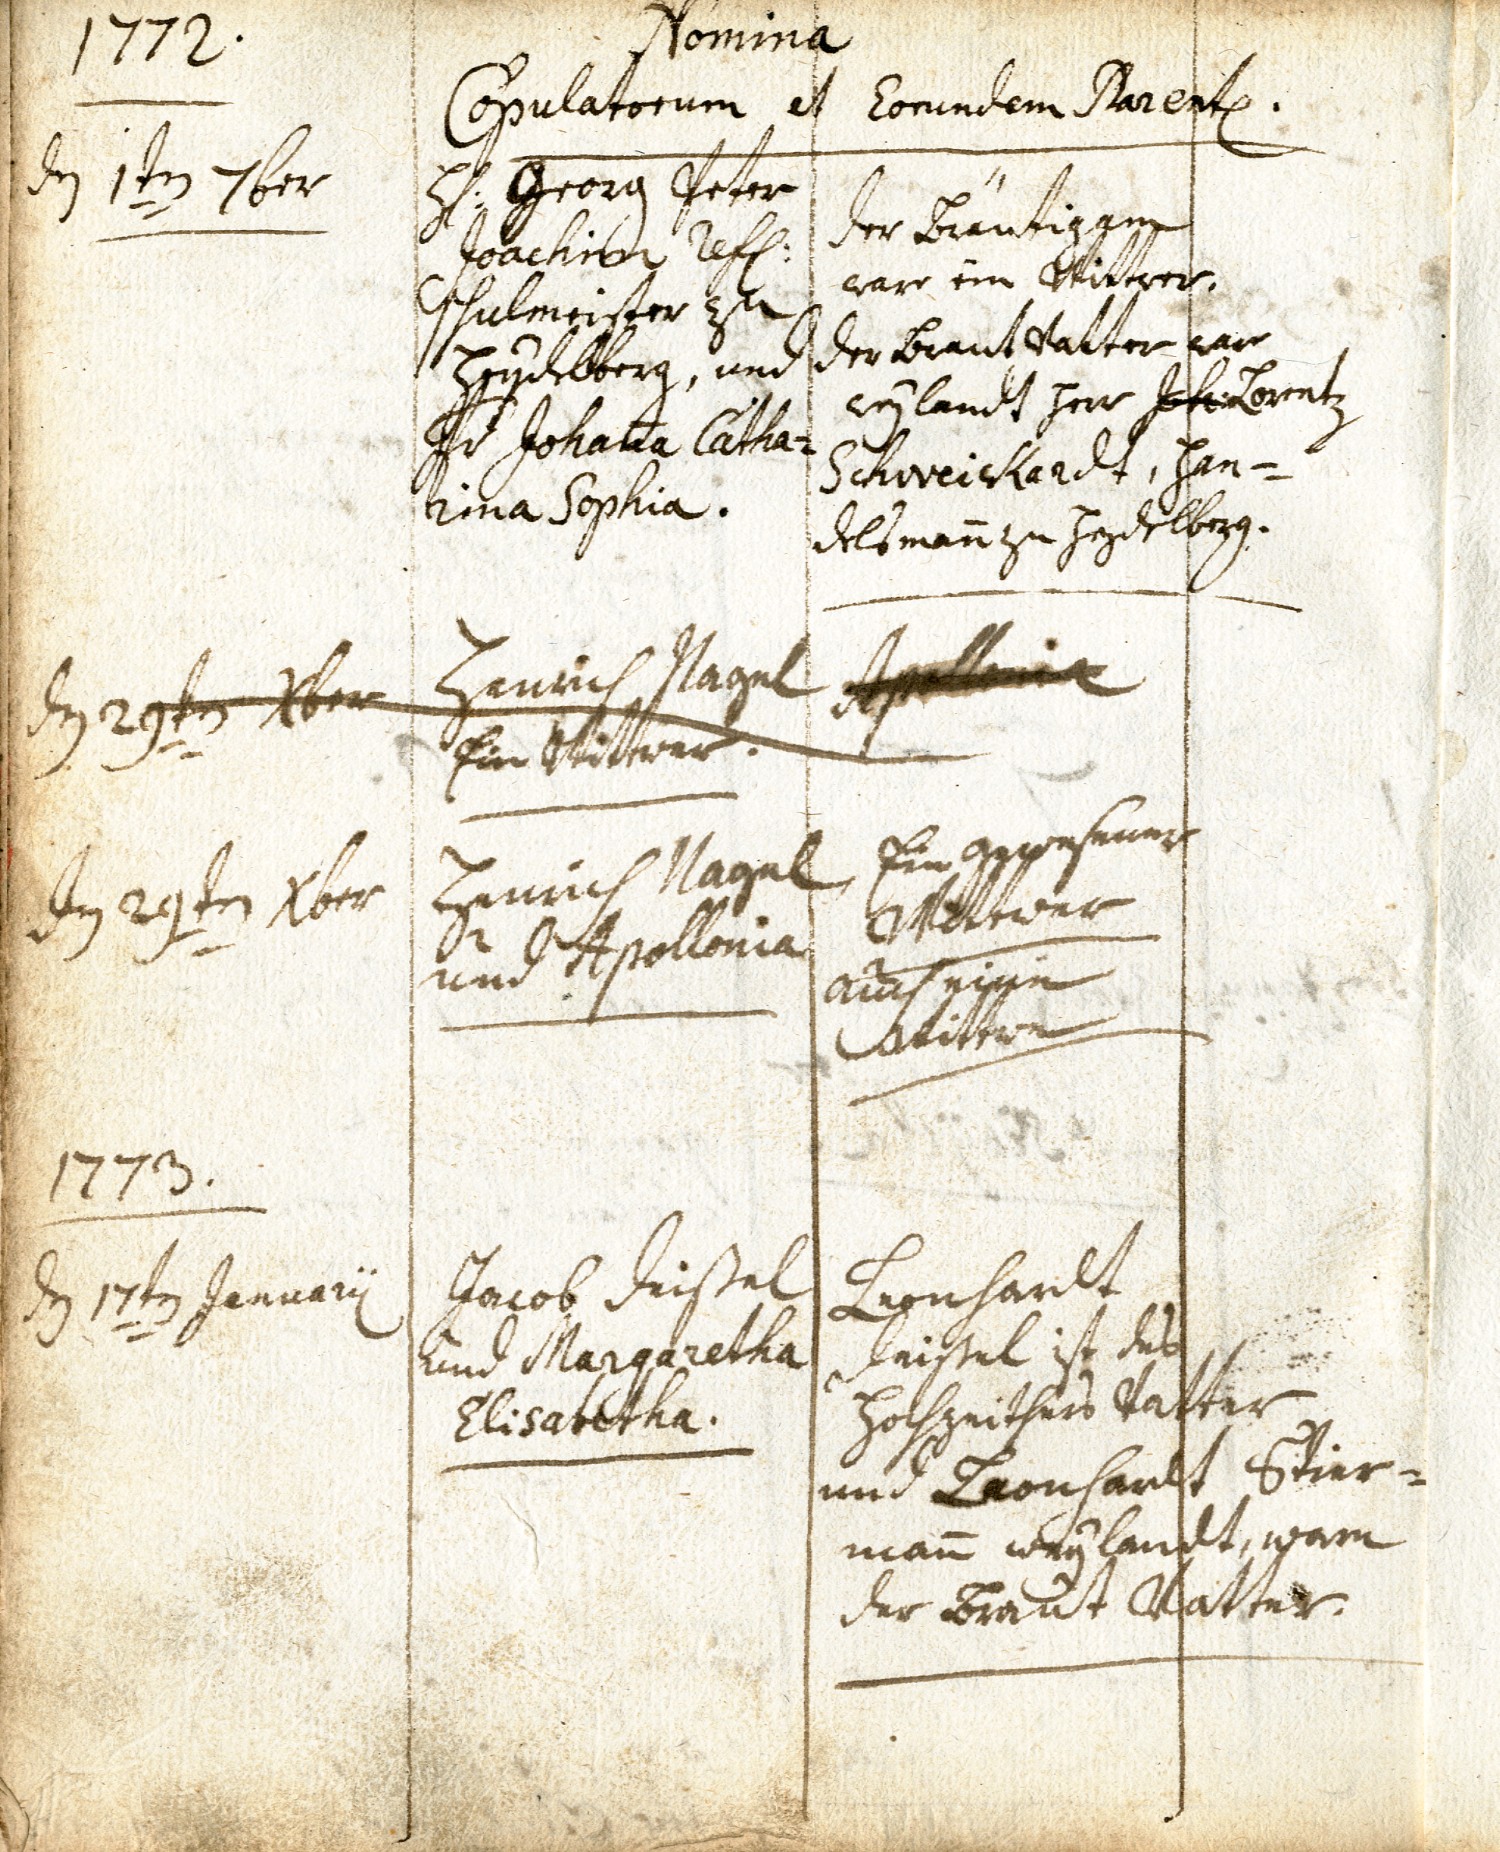 1772.
Nomina
Copulatorum et Eorundem Parent.
den 1ten 7ber
H: Georg Peter
Joachim Reff:
Schulmeister zu
Heydelberg, und
Johanna Catha=
rina Sophia.
der Bräutigam
ware ein Wittwer.
der Braut Vatter war
weylandt Herr Joh. Lorentz
Schweickardt, Han=
delsmañ zu Heydelberg.
den 29ten Xber
Henrich Nagel
Ein Wittwer.
Apollonia
den 29ten Xber
Henrich Nagel
und Apollonia
Ein gewesener
Wittwer
auch eine
Wittwe
1773.
den 17ten Januarij
Jacob Deißel
und Margaretha
Elisabetha.
Leonhardt
Deißel ist des
Hochzeithers Vatter
und Leonhardt Stier=
mañ weylandt, waren
der Braut Vatter.